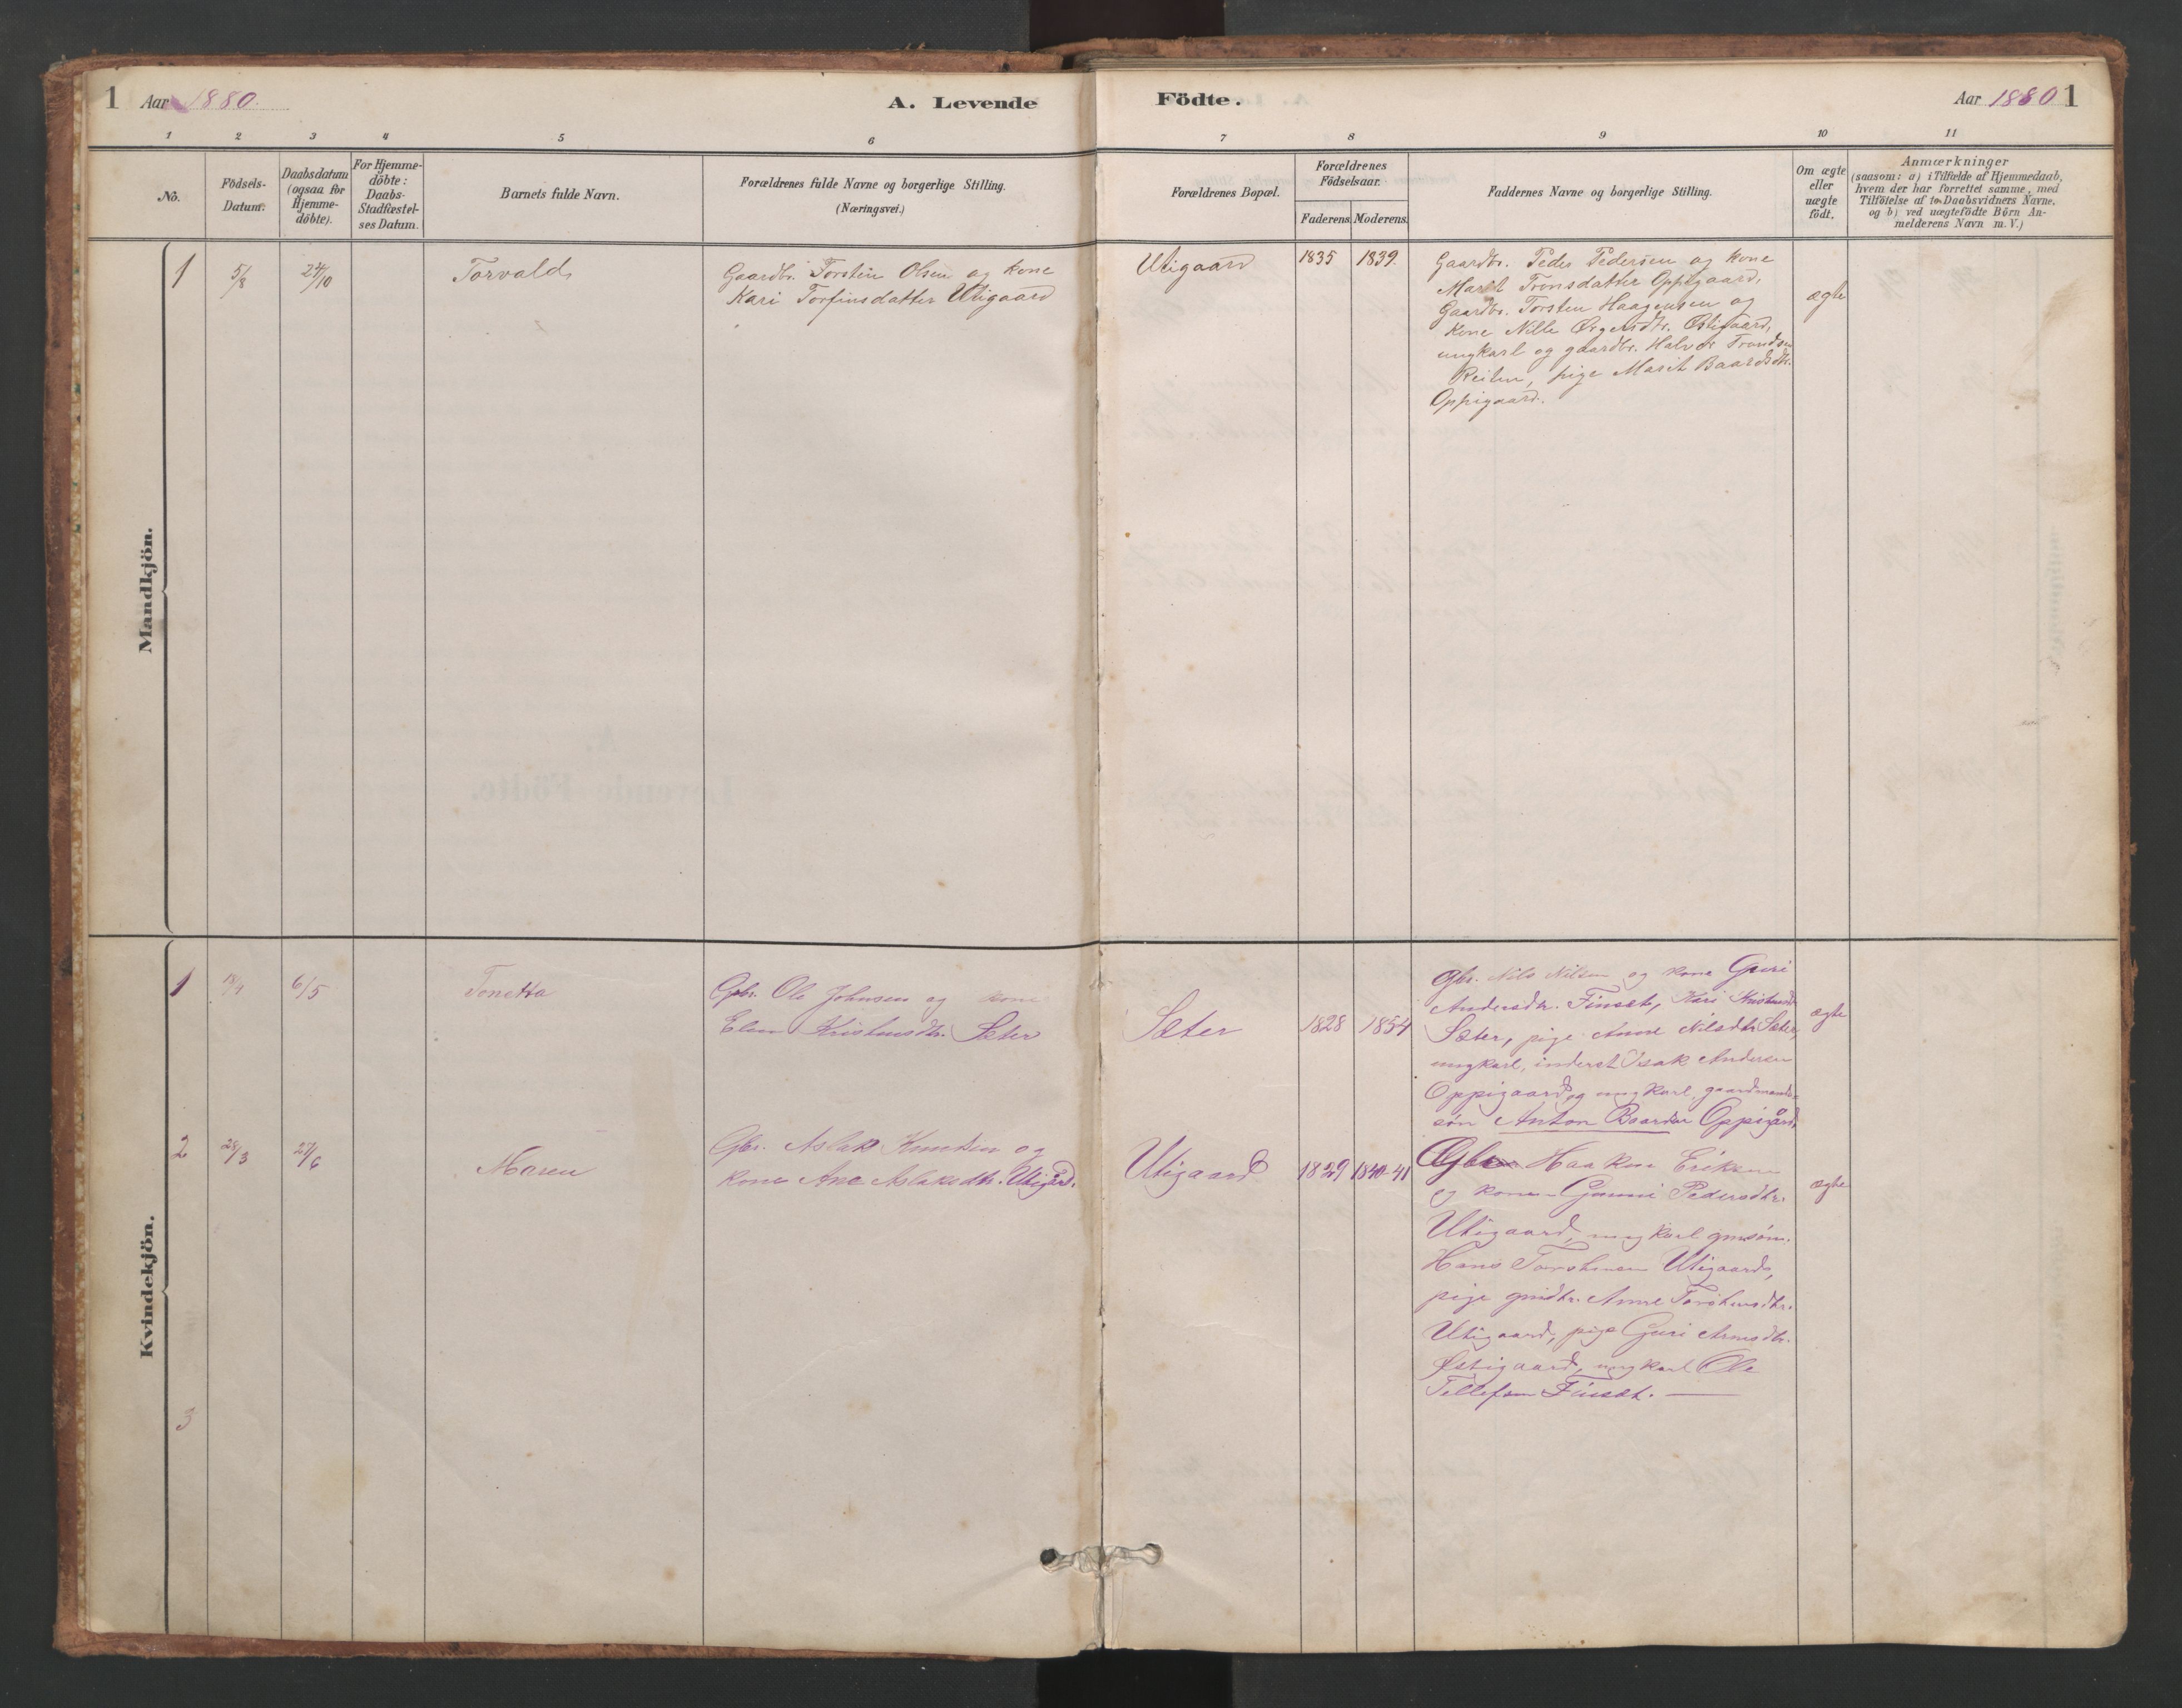 1 Aar 1880. A. Levende Födte. Aar 1880 1
1 2 3 4 5 6 7 8 9 10 11
No.
Födsels-
Datum.
Daabsdatum
(ogsaa for
Hjemme-
döbte).
For Hjemme-
döbte:
Daabs-
Stadfæstel-
ses Datum.
Barnets fulde Navn.
Forældrenes fulde Navne og borgerlige Stilling.
(Næringsvei.)
Forældrenes Bopæl.
Forældrenes
Födselsaar.
Faderens. Moderens.
Faddernes Navne og borgerlige Stilling.
Om ægte
eller
uægte
födt.
Anmærkninger
(saasom: a) i Tilfælde af Hjemmedaab,
hvem der har forrettet samme, med
Tilföielse af to Daabsvidners Navne,
og b) ved uægtefödte Börn An-
melderens Navn m. V.)
Mandkjön.
1 5/8 24/10 Torvald
Gaardbr. Torstein Olsen og kone
Kari Torfinsdatter Utigaard
Utigaard 1835 1839.
Gaardbr. Peder Pedersen og kone
Marit Tronsdatter Oppigaard,
Gaardbr. Torsten Haagensen og
kone Nille Østigaard,
ungkarl og gaardbr. Halvor Trondsen
Reiten, pige Marit Baardsdtr.
Oppigaard.
ægte
Kvindekjön.
1 18/4 6/5 Tonetta
Gbr. Ole Johnsen og kone
Elen Kristensdtr. Sæter
Sæter 1828 1854
Gbr. Nils Nilsen og kone Guri
Andersdtr. Finset, Kari Kristensd.
Sæter, pige Anne Nilsdtr. Sæter,
ungkarl, inderst Isak Andersen
Oppigaard og ungkarl, gaardmands-
søn Anton Baardsen Oppigård.
ægte
2 28/3 27/6 Maren
Gbr. Aslak Knutsen og
kone Ane Aslaksdtr. Utigård.
Utigaard 1829 1840-41
Gbr. Haaken Eriksen
og kone Gunni Pedersdtr.
Utigaard, ungkarl gmsøn.
Hans Torstensen Utigaard,
pige gmdtr. Anne Torstensdtr.
Utigaard, pige Guri Arnesdtr.
Østigaard, ungkarl Ole
Tellefsen Finset.
ægte
3